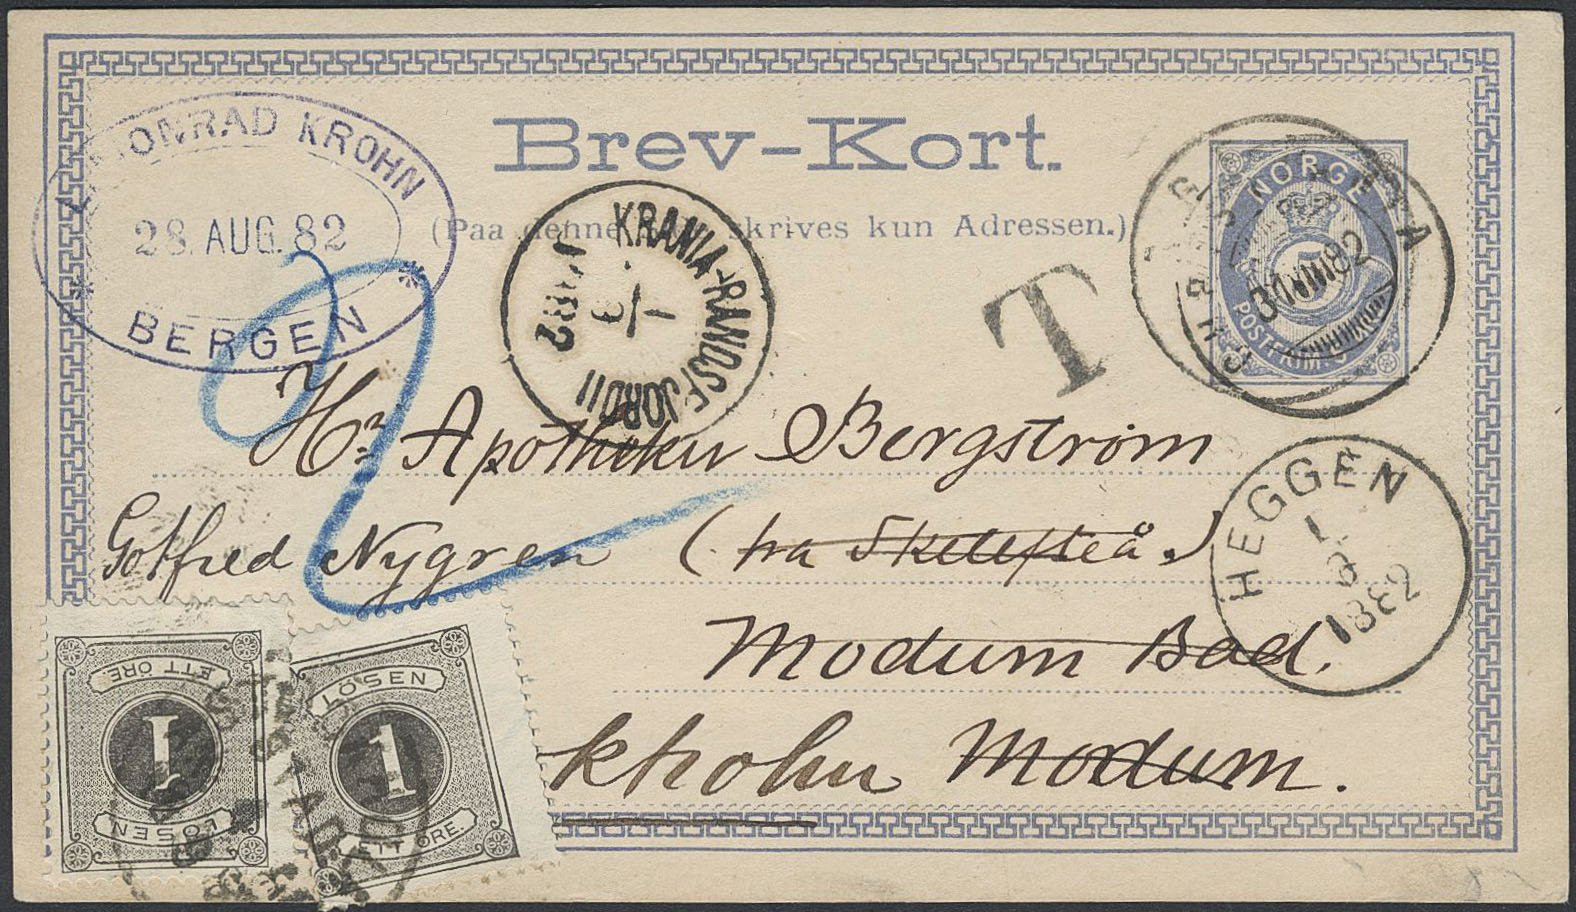 Brev-Kort.
KONRAD KROHN
28. AUG. 82
BERGEN
(Paa denne skrives kun Adressen.)
NORGE
POSTFRIM.
31 VIII 82
KRANIA-RANDSFJORD II
1
9
1882
T
Hr Apotheker Bergström
Gotfred Nygren (fra Skellefteå.)
Modum Bad.
kholm Modum.
HEGGEN
1
9
1882
ETT ÖRE
1
LÖSEN
LÖSEN
1
ETT ÖRE.
2